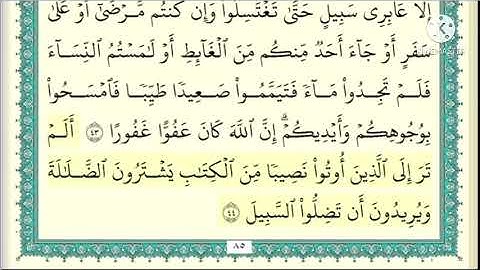 إِلَّا عَابِرِي سَبِيلٍ حَتَّىٰ تَغْتَسِلُوا۟ وَإِن كُنتُم مَّرْضَىٰٓ أَوْ عَلَىٰ
سَفَرٍ أَوْ جَآءَ أَحَدٌ مِّنكُم مِّنَ ٱلْغَآئِطِ أَوْ لَٰمَسْتُمُ ٱلنِّسَآءَ
فَلَمْ تَجِدُوا۟ مَآءً فَتَيَمَّمُوا۟ صَعِيدًا طَيِّبًا فَٱمْسَحُوا۟
بِوُجُوهِكُمْ وَأَيْدِيكُمْ ۗ إِنَّ ٱللَّهَ كَانَ عَفُوًّا غَفُورًا ٤٣ أَلَمْ
تَرَ إِلَى ٱلَّذِينَ أُوتُوا۟ نَصِيبًا مِّنَ ٱلْكِتَٰبِ يَشْتَرُونَ ٱلضَّلَٰلَةَ
وَيُرِيدُونَ أَن تَضِلُّوا۟ ٱلسَّبِيلَ ٤٤
٨٥